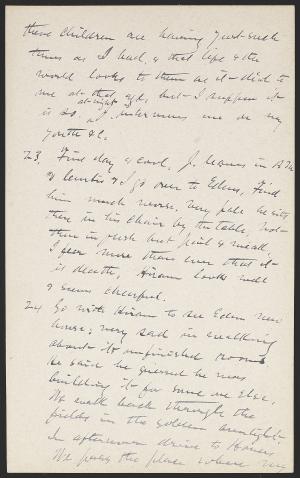 these children are having just such
times as I had, & that life & the
world looks to them as it did to
me at that age, but I suppose it
is so. at night I interview one on my
youth &c.
23. Fine day & cool, J. leaves in A.M.
& Curtis & I go over to Edens, Find
him much worse. Very pale he sits
there in his chair by the table, not
thin in flesh but pale & weak,
I fear more than ever that it
is death, Hiram looks well
& seems cheerful.
24 Go with Hiram to see Edens new
house; very sad in walking
about its unfinished rooms.
He said he guessed he was
building it for some one else.
We walk back through the
fields in the golden sunlight.
In afternoon drive to Homers
We pass the place where my